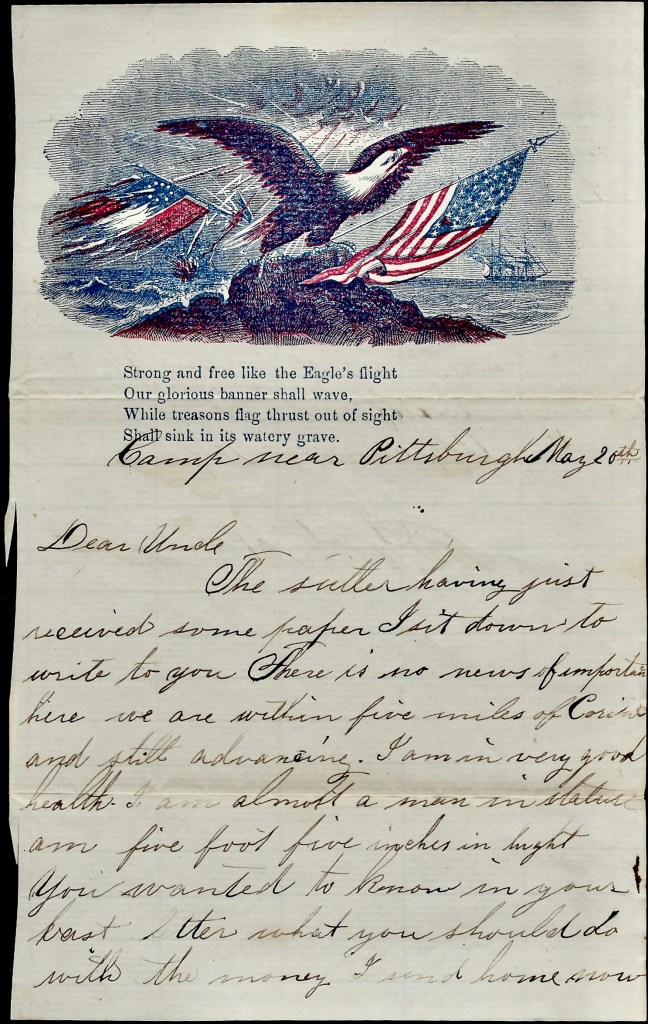 Strong and free like the Eagle's flight
Our glorious banner shall wave,
While treasons flag thrust out of sight
Shall sink in its watery grave.
Camp near Pittsburgh May 20th
Dear Uncle
The sutler having just
received some paper I sit down to
write to you There is no news of importan
here we are within five miles of Corint
and still advancing. I am in very good
health. I am almost a man in stature
am five foot five inches in hight
You wanted to know in your
last letter what you should do
with the money I send home now